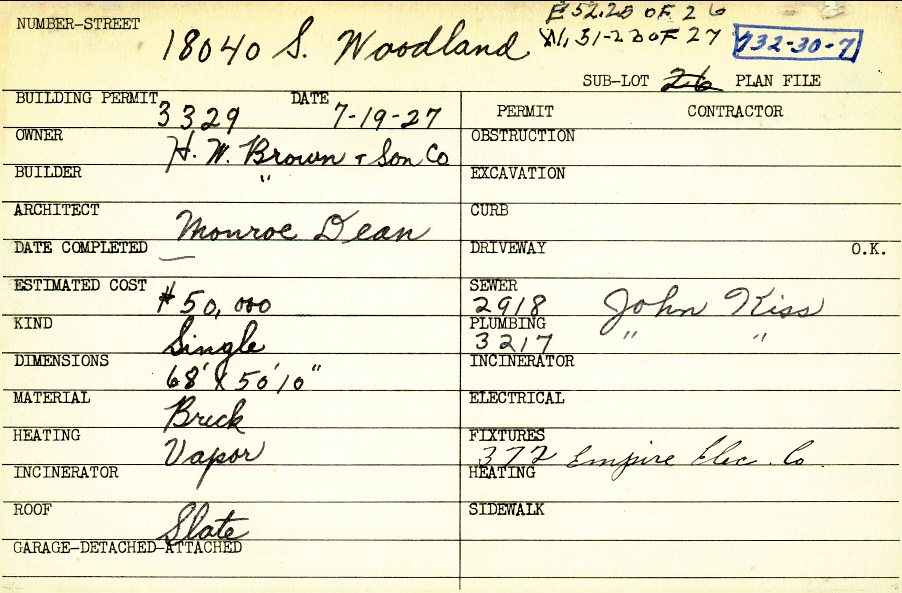 E 52.28 OF 26
NUMBER-STREET 18040 S. Woodland W. 31-23 OF 27 732-30-7
SUB-LOT 26 PLAN FILE
BUILDING PERMIT 3329 DATE 7-19-27 PERMIT CONTRACTOR
OWNER H. W. Brown + Son Co OBSTRUCTION
BUILDER " EXCAVATION
ARCHITECT Monroe Dean CURB
DATE COMPLETED — DRIVEWAY O.K.
ESTIMATED COST $50,000 SEWER 2918 John Kiss
KIND Single PLUMBING 3217 " "
DIMENSIONS 68' X 50'10" INCINERATOR
MATERIAL Brick ELECTRICAL
HEATING Vapor FIXTURES 372 Empire Elec. Co.
INCINERATOR HEATING
ROOF Slate SIDEWALK
GARAGE-DETACHED-ATTACHED